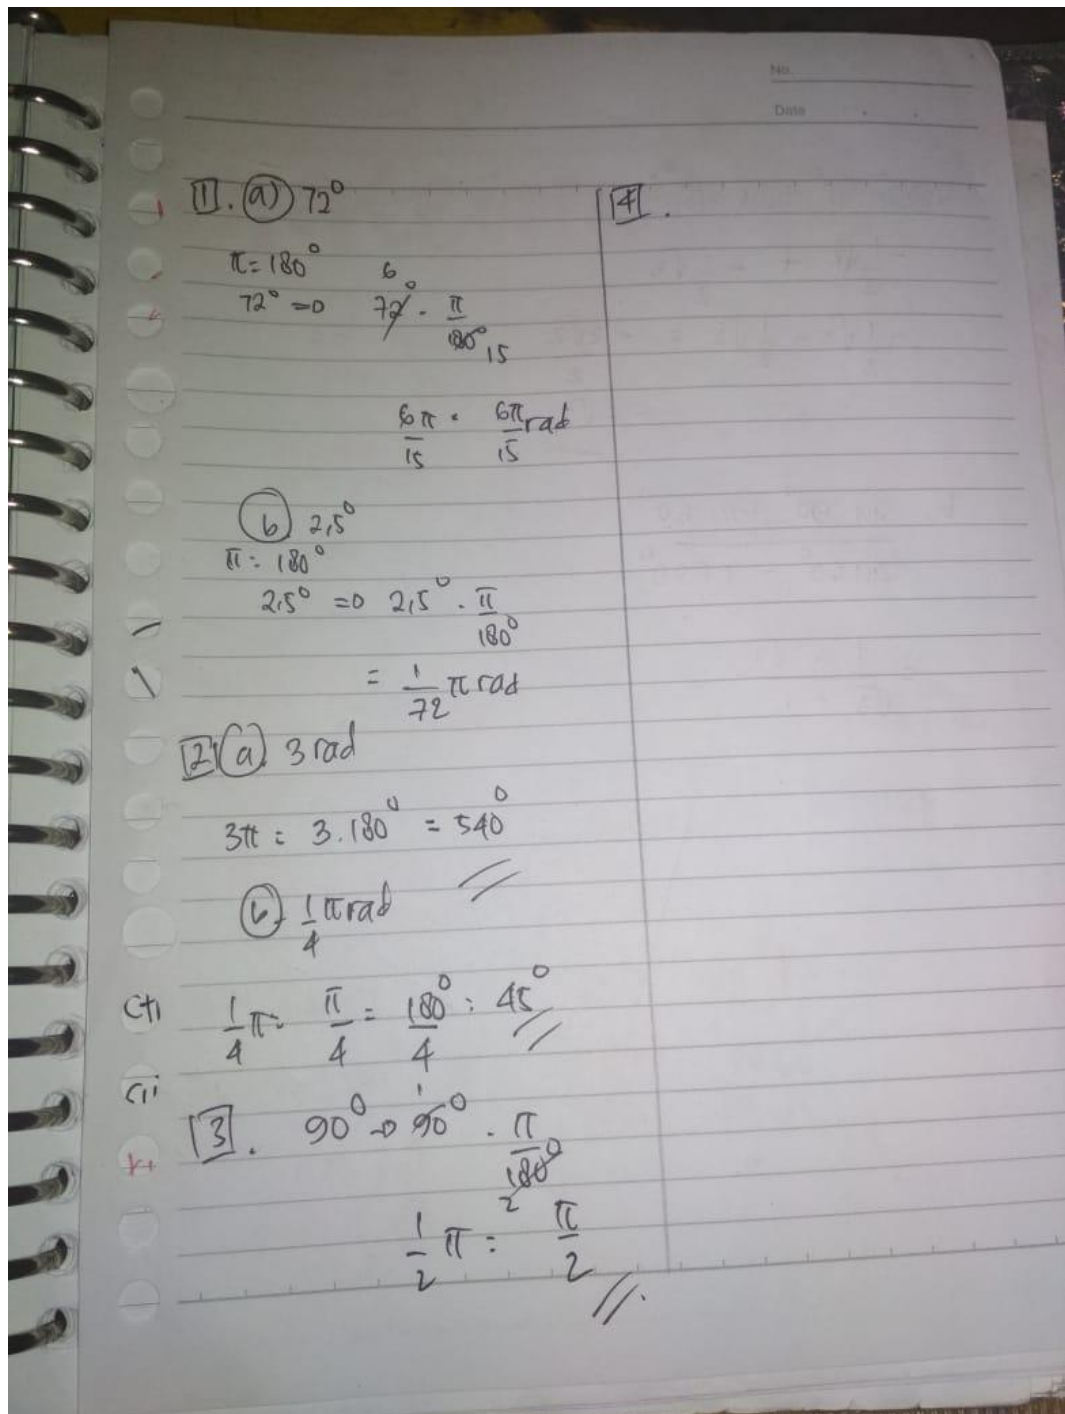 No.
Date
1. a) 72°
π = 180°
6
72° ⇒ 72° · π/180° 15
6π/15 = 6π/15 rad
b) 2,5°
π = 180°
2,5° ⇒ 2,5° · π/180°
= 1/72 π rad
2 a. 3 rad
3π = 3.180° = 540°
b. 1/4 π rad
1/4 π = π/4 = 180°/4 = 45°
1
3. 90° → 90° · π/180°
2
1/2 π = π/2
4.